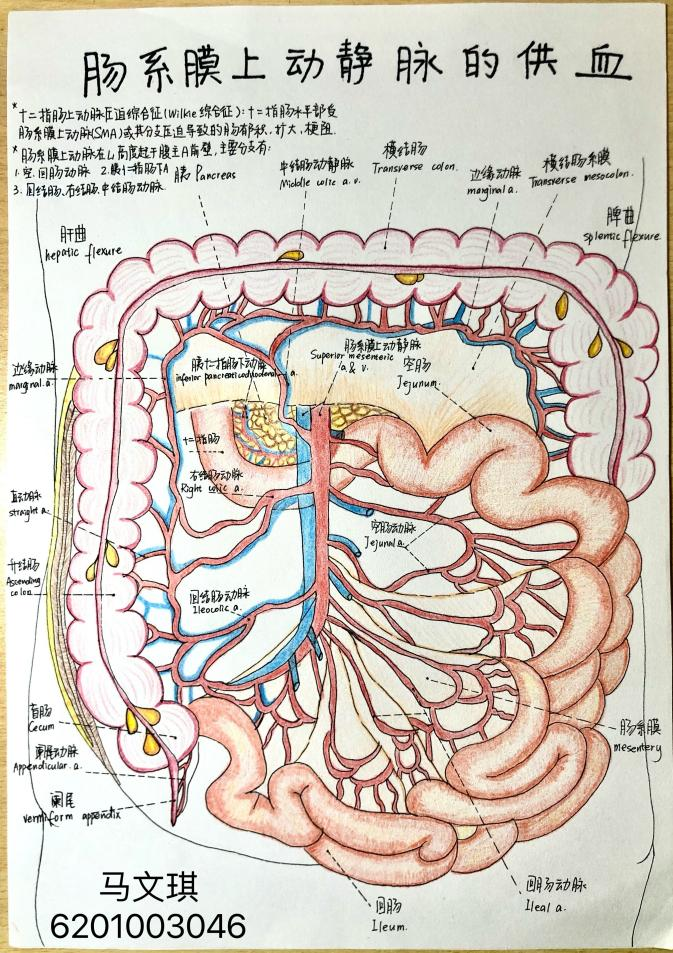 肠系膜上动静脉的供血
* 十二指肠上动脉压迫综合征(Wilkie综合征):十二指肠水平部受
肠系膜上动脉(SMA)或其分支压迫导致的肠有淤状,扩大,梗阻.
* 肠系膜上动脉在L₁高度起于腹主A前壁,主要分支有:
1. 空.回肠动脉 2.胰十二指肠下A
3. 回结肠、右结肠、中结肠动脉.
胰 Pancreas
中结肠动静脉
Middle colic a. v.
横结肠
Transverse colon.
边缘动脉
marginal a.
横结肠系膜
Transverse mesocolon.
肝曲
hepatic flexure
脾曲
splentic flexure
边缘动脉
marginal. a.
胰十二指肠下动脉
inferior pancreaticoduodenal a.
肠系膜上动静脉
Superior mesenteric
a & v.
空肠
Jejunum.
十二指肠
右结肠动脉
Right colic a.
直动脉
straight a.
空肠动脉
Jejunal a.
升结肠
Ascending
colon.
回结肠动脉
Ileocolic a.
盲肠
Cecum
阑尾动脉
Appendicular. a.
阑尾
vermiform appendix
肠系膜
mesentery
回肠动脉
Ileal a.
回肠
Ileum.
马文琪
6201003046